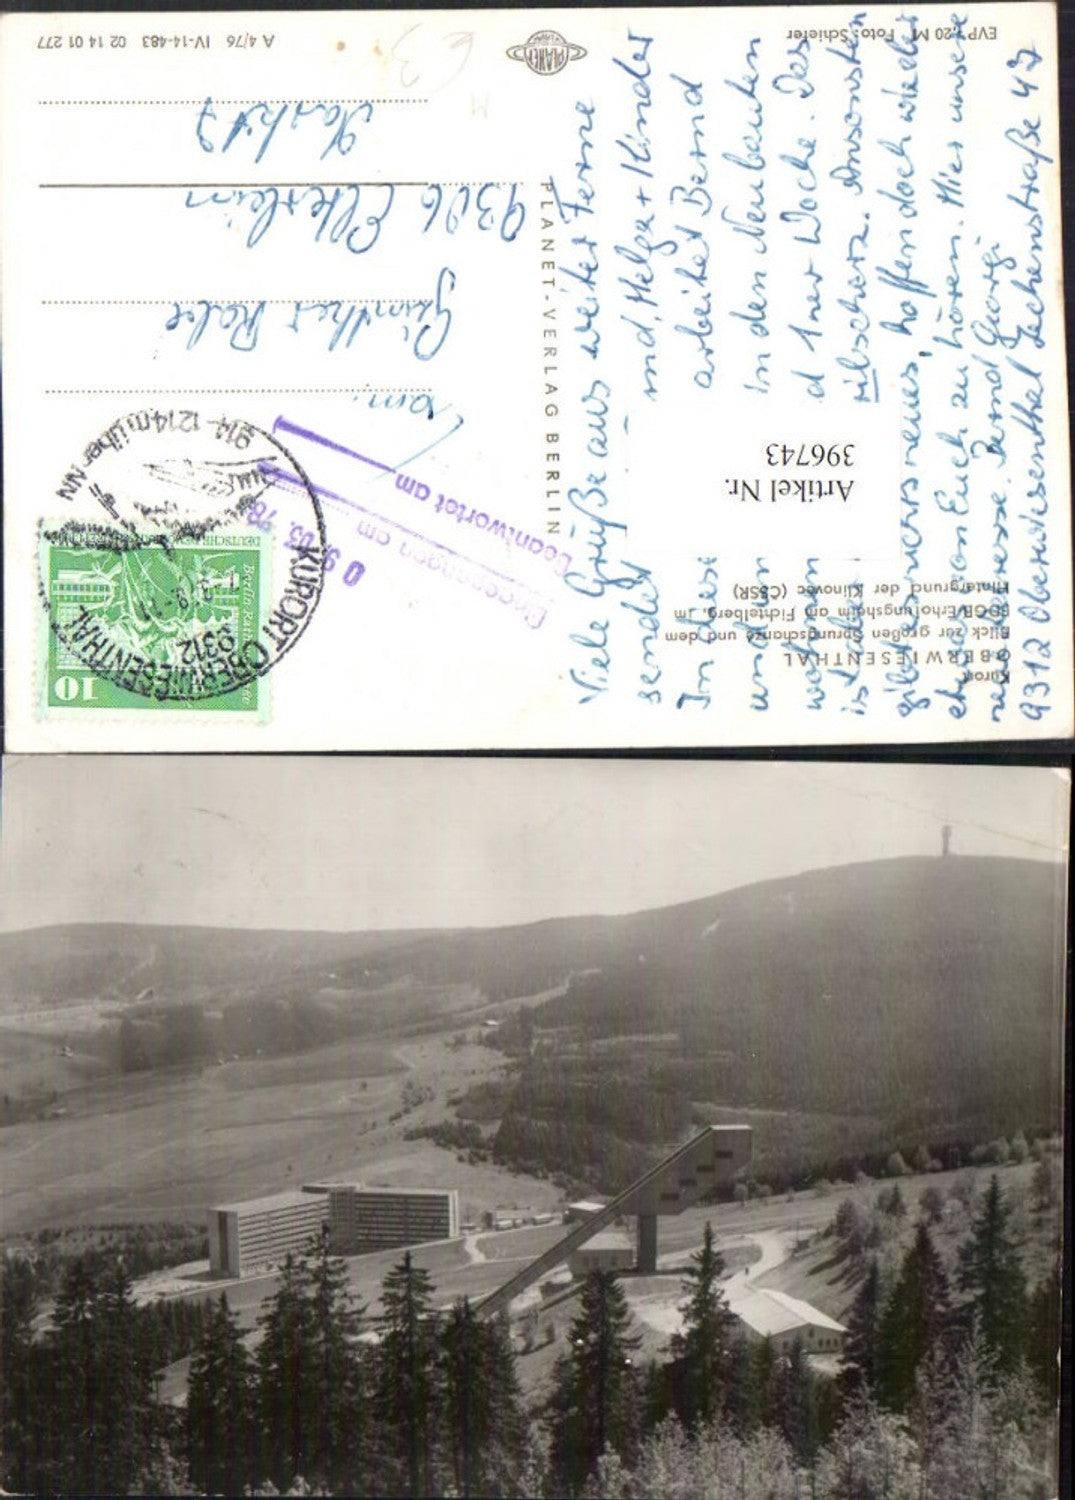 Viele Grüße aus weiter Ferne
sendet und, Helga + Kinder
In diese arbeitet Bernd
und in in den Neubauten
wohnen d 1ner Woche. Das
ist aber Ansonsten
gibt es nichts neues, hoffen doch wieder
etwas von Euch zu hören. Hier unsere
neue Adresse. Bernd Georgi
9312 Oberwiesenthal Zechenstraße 47
Artikel Nr.
396743
Kurort
OBERWIESENTHAL
Blick zur großen Sprungschanze und dem
FDGB-Erholungsheim am Fichtelberg. Im
Hintergrund der Klinovec (ČSSR)
PLANET-VERLAG BERLIN
PLANET
EVP -,20 M Foto: Schierer
A 4/76 IV-14-483 02 14 01 277
Fam.
Günther
9306 Elterlein
Markt 7
Eingegangen am
09. 03. 78
Beantwortet am
KURORT OBERWIESENTHAL
9312
914-1214 m über NN
10